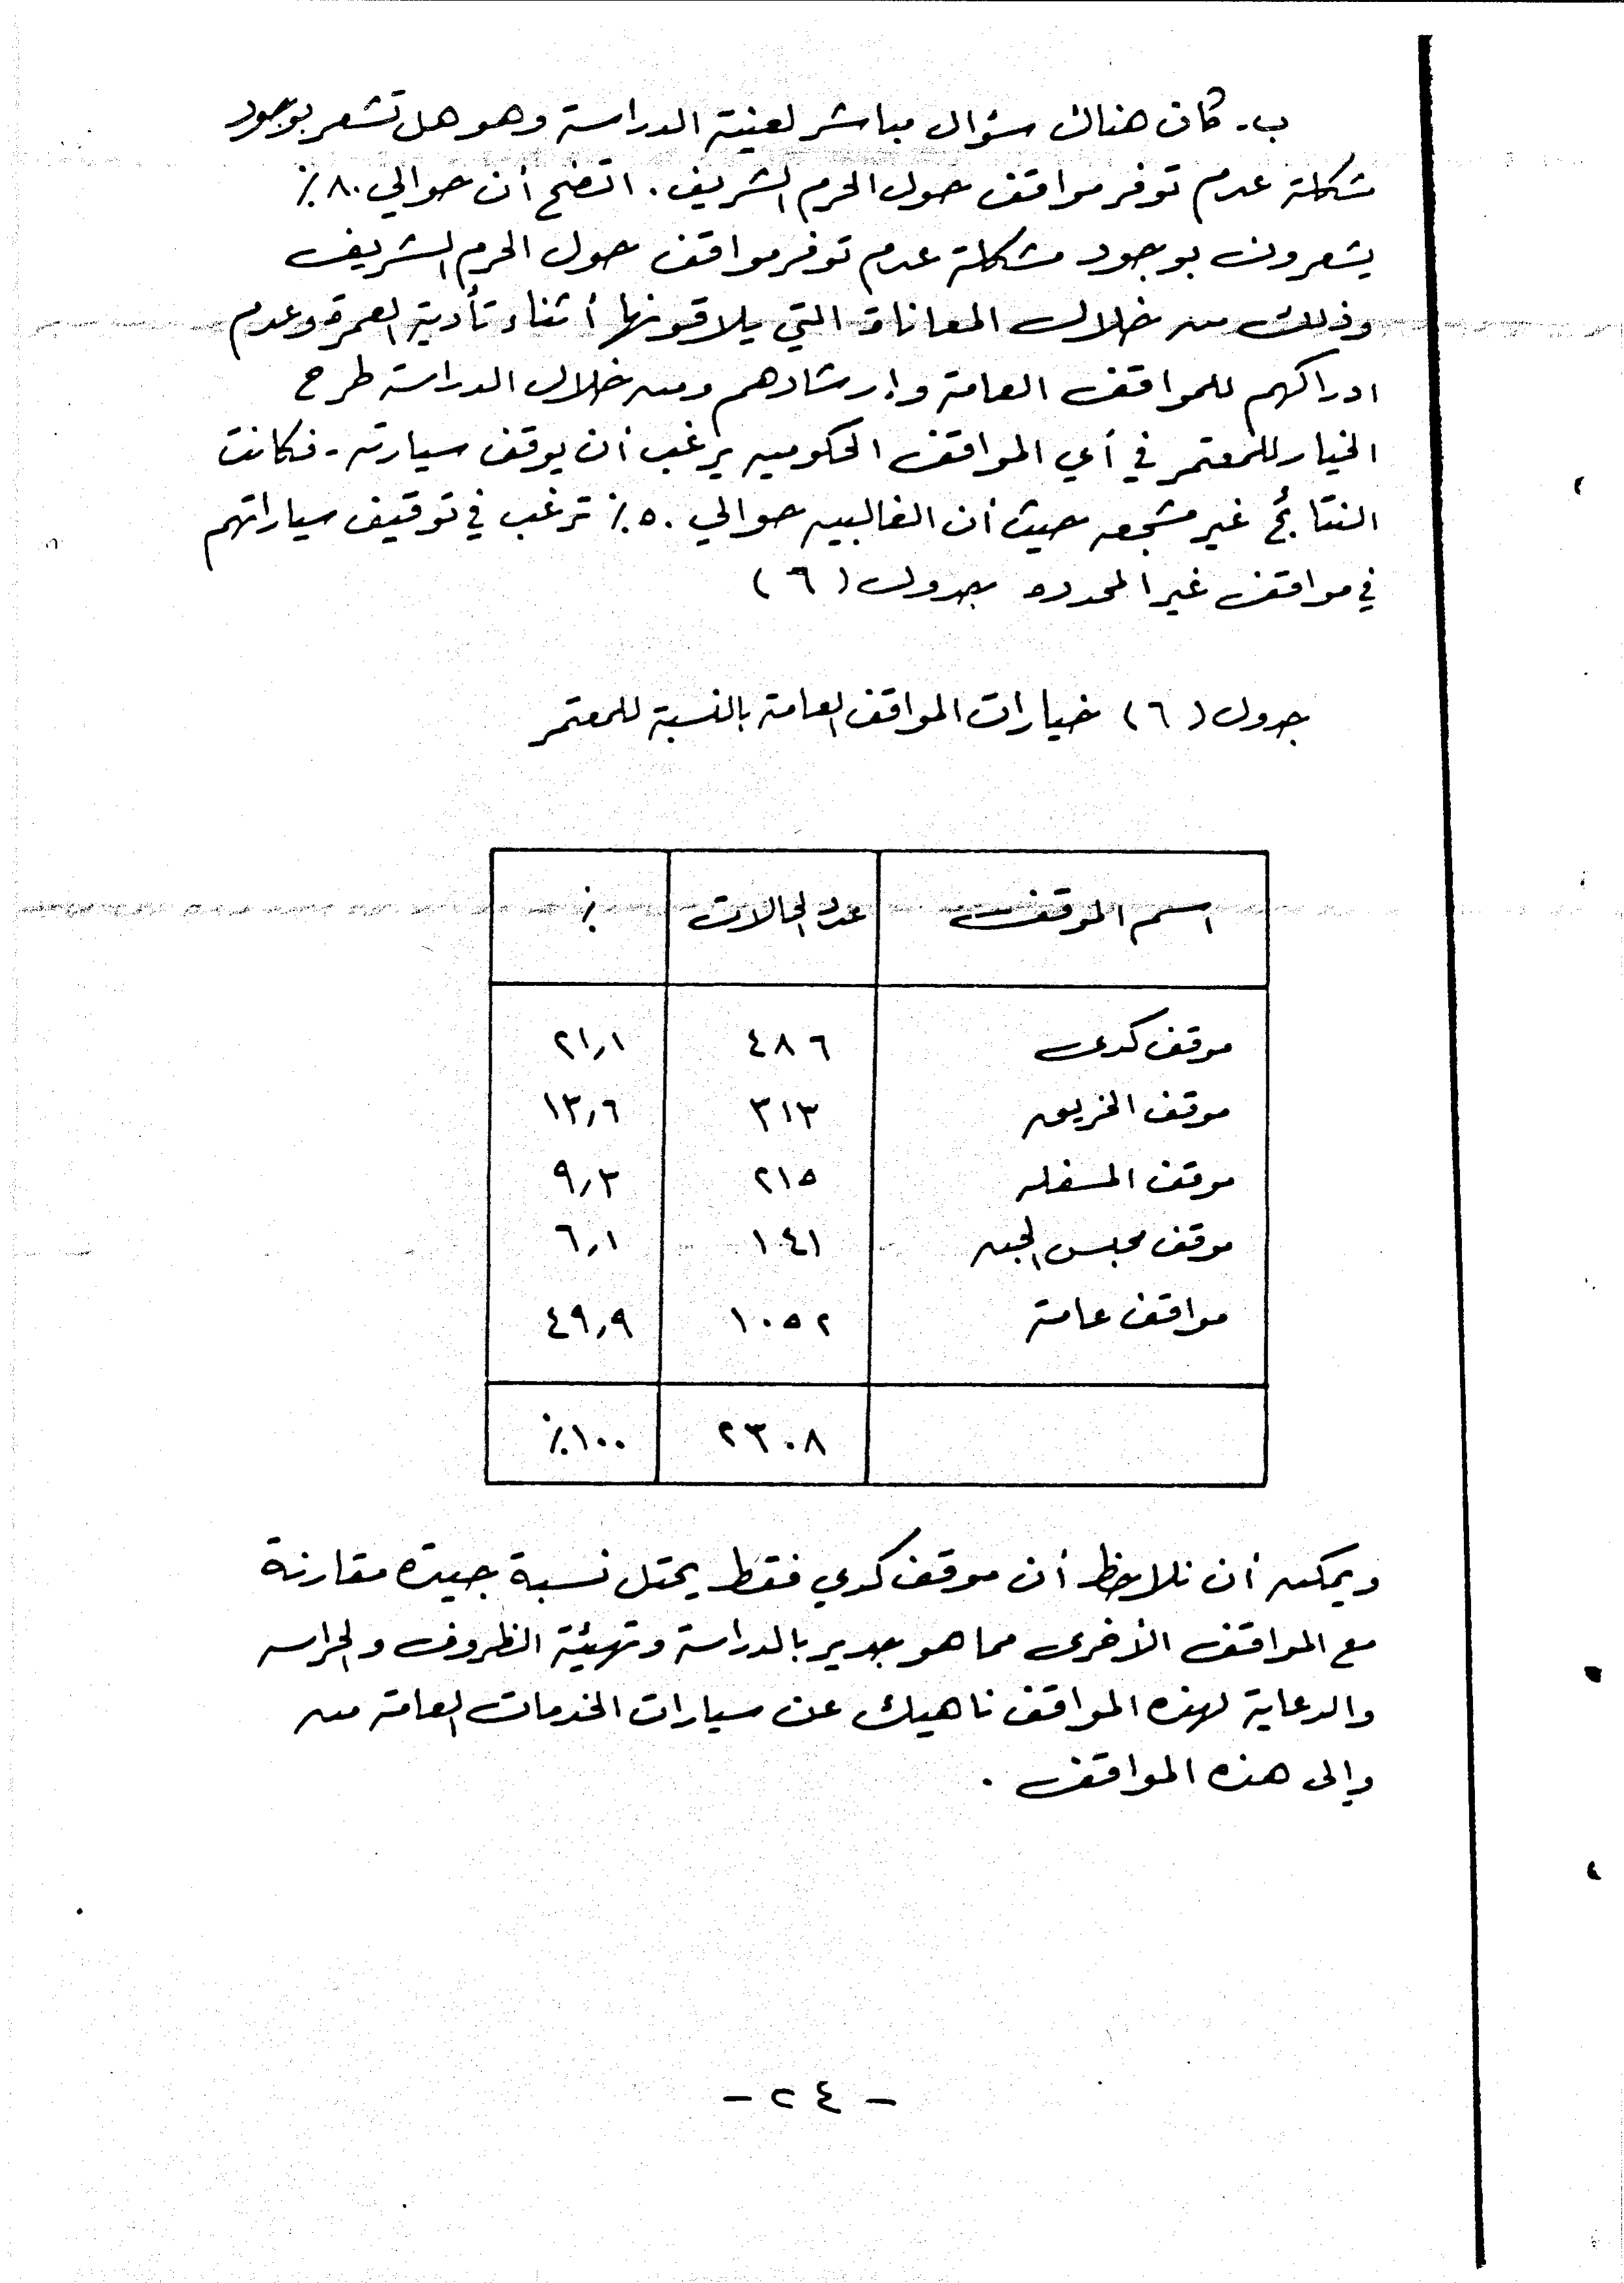 ب - كان هناك سؤال مباشر لعينة الدراسة وهو هل تشعر بوجود
مشكلة عدم توفر مواقف حول الحرم الشريف . اتضح أن حوالي ٨٠٪
يشعرون بوجود مشكلة عدم توفر مواقف حول الحرم الشريف
وذلك من خلال المعاناة التي يلاقونها أثناء تأدية العمرة وعدم
ادراكهم للمواقف العامة وإرشادهم ومن خلال الدراسة طرح
الخيار للمعتمر في أي المواقف الحكوميه يرغب أن يوقف سيارته - فكانت
النتائج غير مشجعه حيث أن الغالبيه حوالي ٥٠٪ ترغب في توقيف سياراتهم
في مواقف غير المحدده بجدول (٦)
جدول (٦) خيارات المواقف العامة بالنسبة للمعتمر
اسم الموقف عدد الحالات ٪
موقف كدى ٤٨٦ ٢١,١
موقف الخريق ٣١٣ ١٣,٦
موقف المسفله ٢١٥ ٩,٣
موقف محبس الجن ١٤١ ٦,١
مواقف عامة ١٠٥٢ ٤٩,٩
٢٣٠٨ ١٠٠٪
ويمكن أن نلاحظ أن موقف كدي فقط يحتل نسبة جيدة مقارنة
مع المواقف الأخرى مما هو جدير بالدراسة وتهيئة الظروف والحراسه
والدعاية لهذه المواقف ناهيك عن سيارات الخدمات العامة من
وإلى هذه المواقف .
- ٢٤ -